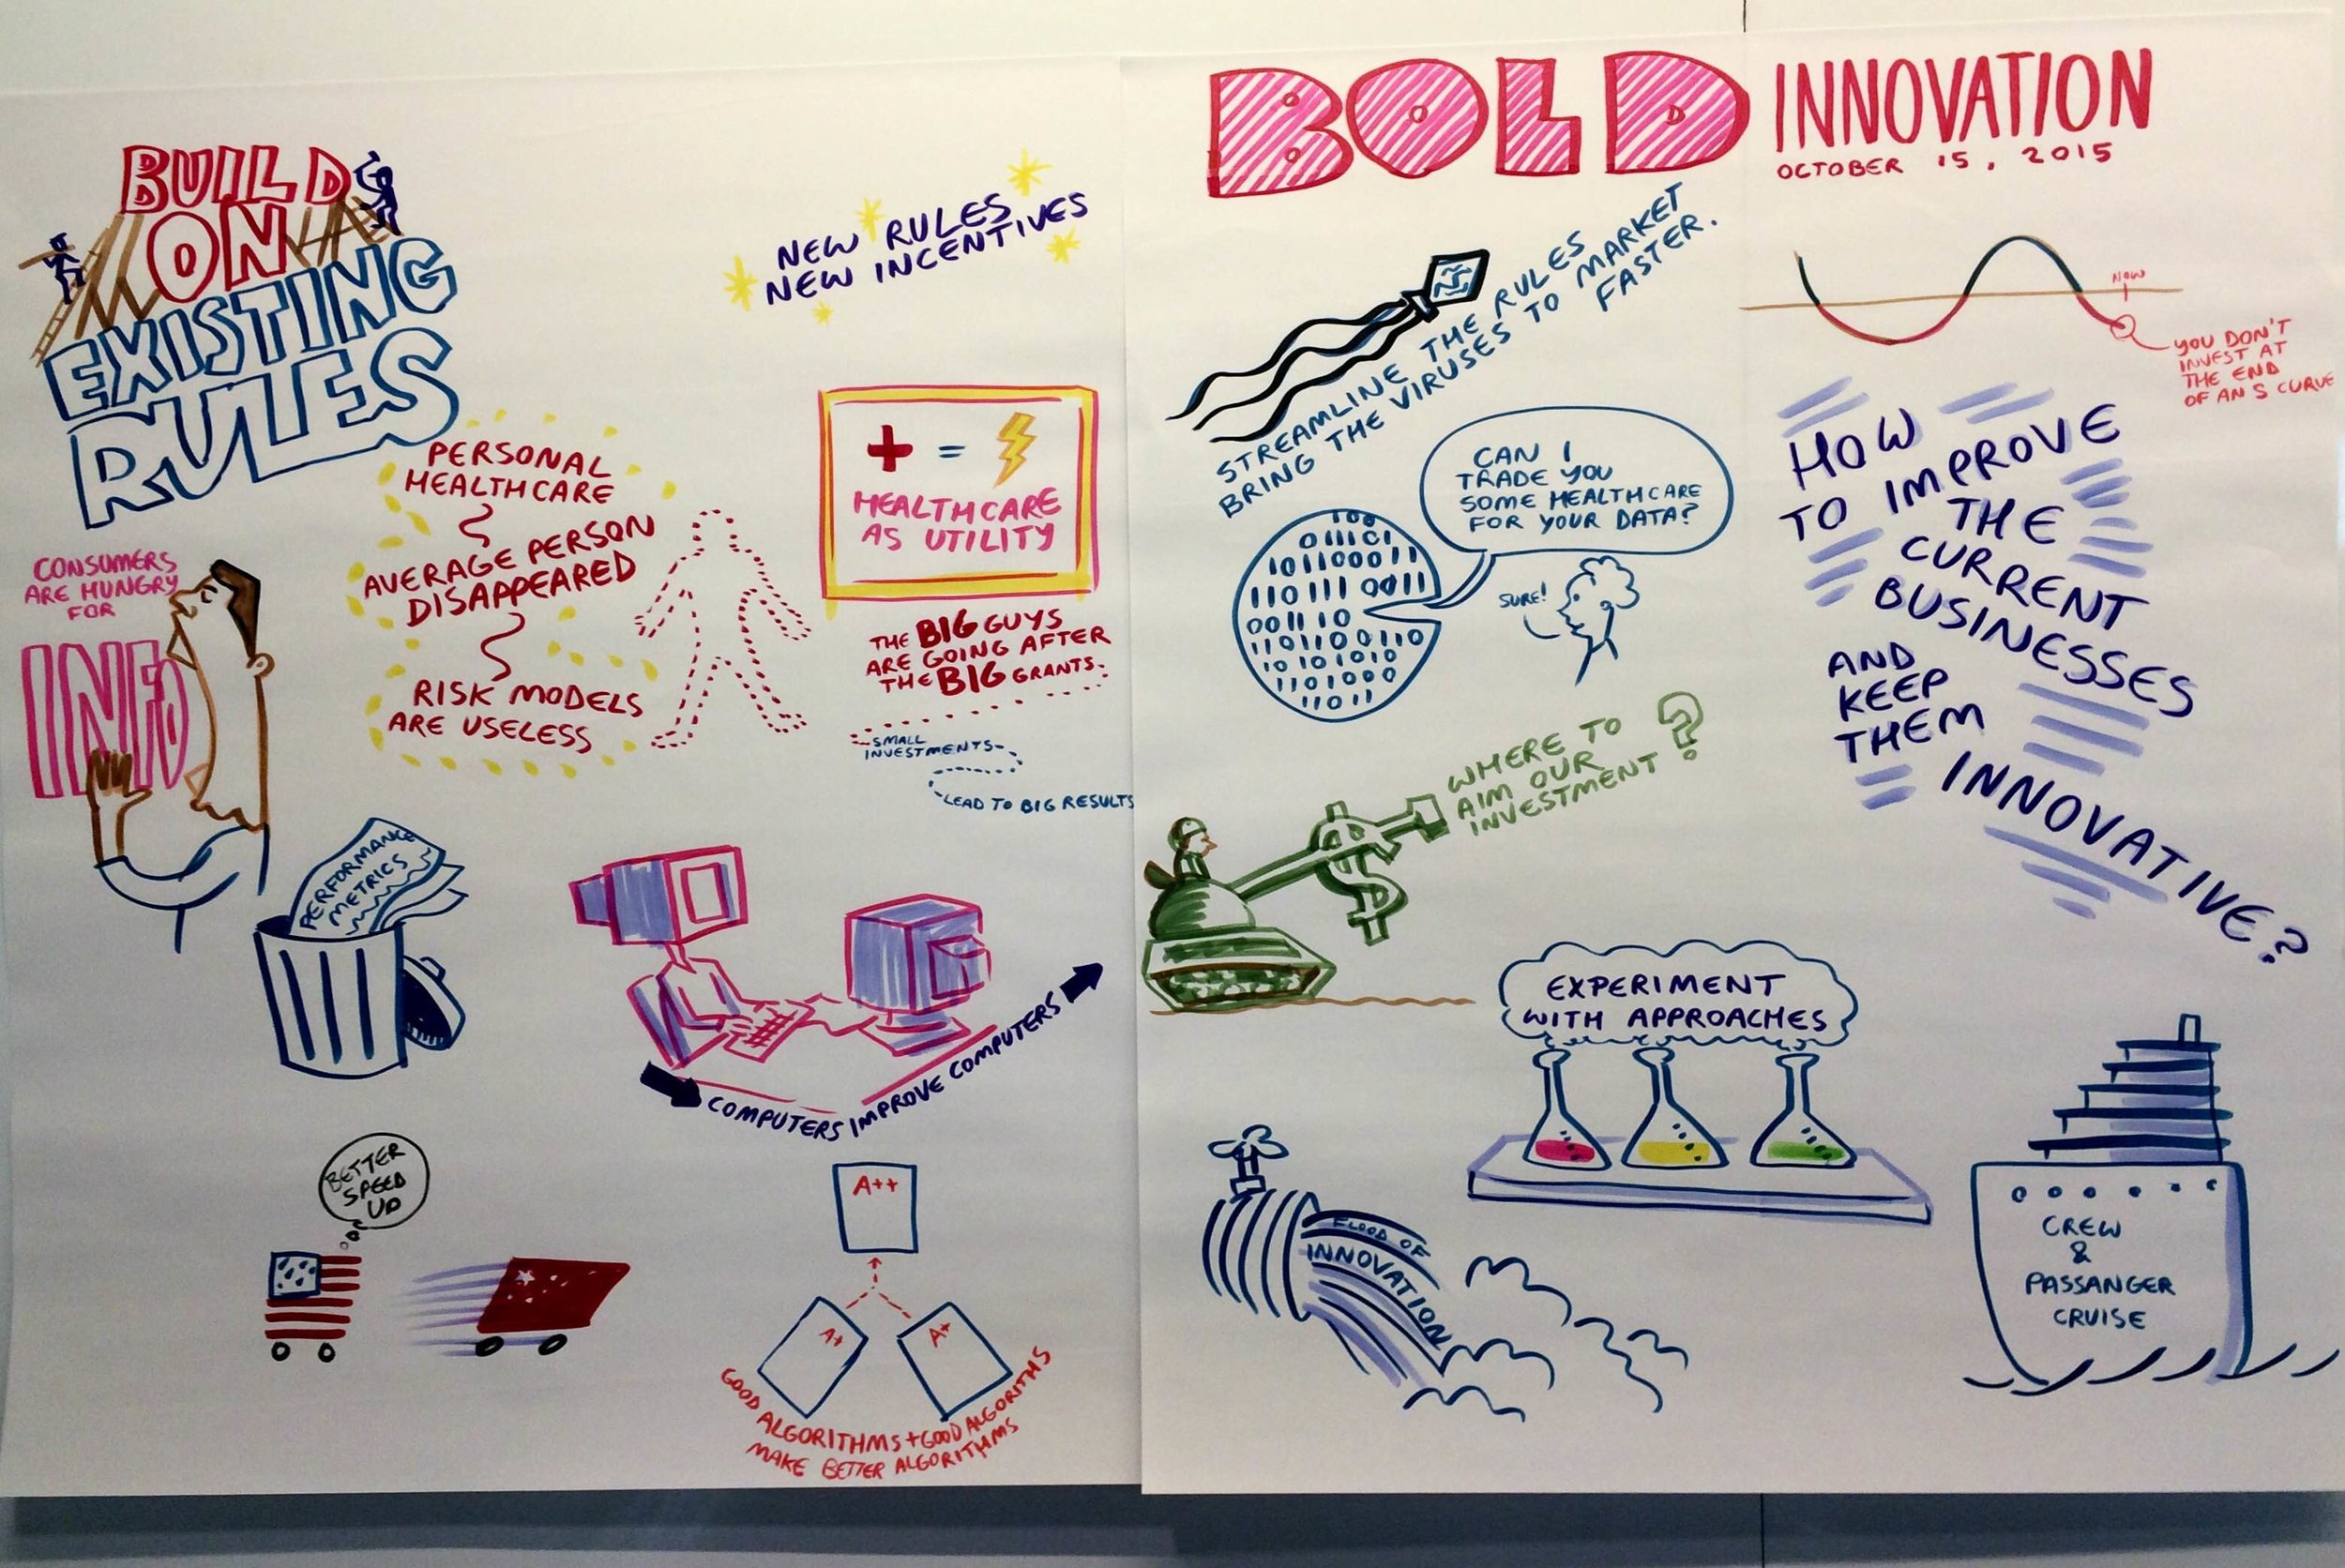 BUILD
ON
EXISTING
RULES
NEW RULES
NEW INCENTIVES
PERSONAL
HEALTHCARE
AVERAGE PERSON
DISAPPEARED
RISK MODELS
ARE USELESS
+ =
HEALTHCARE
AS UTILITY
CONSUMERS
ARE HUNGRY
FOR
INFO
THE BIG GUYS
ARE GOING AFTER
THE BIG GRANTS.
SMALL
INVESTMENTS
LEAD TO BIG RESULTS
PERFORMANCE
METRICS
COMPUTERS IMPROVE COMPUTERS
BETTER
SPEED
UP
A++
A+
A+
GOOD ALGORITHMS + GOOD ALGORITHMS
MAKE BETTER ALGORITHMS
BOLD INNOVATION
OCTOBER 15, 2015
STREAMLINE THE RULES
BRING THE VIRUSES TO MARKET
FASTER.
NOW
YOU DON'T
INVEST AT
THE END
OF AN S CURVE
CAN I
TRADE YOU
SOME HEALTHCARE
FOR YOUR DATA?
SURE!
HOW
TO IMPROVE
THE
CURRENT
BUSINESSES
AND
KEEP
THEM
INNOVATIVE?
WHERE TO
AIM OUR
INVESTMENT?
$
EXPERIMENT
WITH APPROACHES
FLOOD OF
INNOVATION
CREW
&
PASSANGER
CRUISE